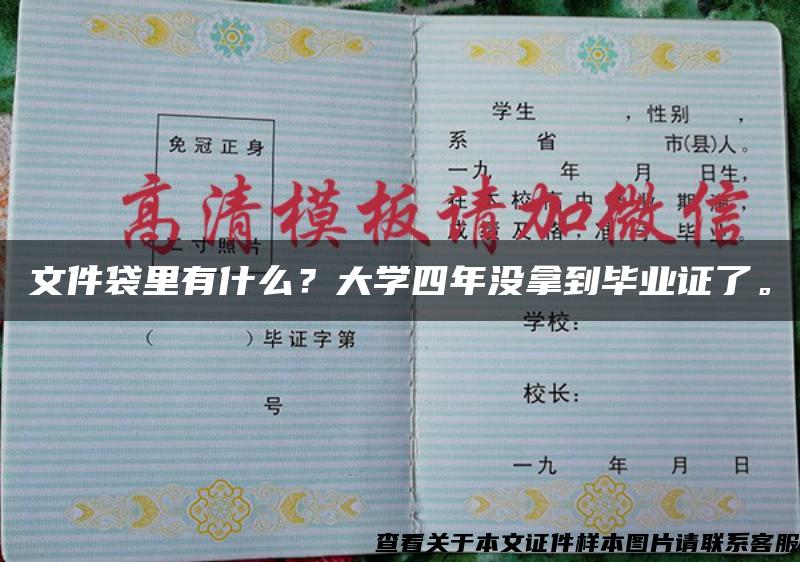 免冠正身
二寸照片
（ ）毕证字第
号
学生 ，性别 ，
系 省 市(县)人。
一九 年 月 日生，
在 校高中 业 期满，
成绩及格，准予毕业。
高清模板请加微信
文件袋里有什么？大学四年没拿到毕业证了。
学校：
校长：
一九 年 月 日
查看关于本文证件样本图片请联系客服